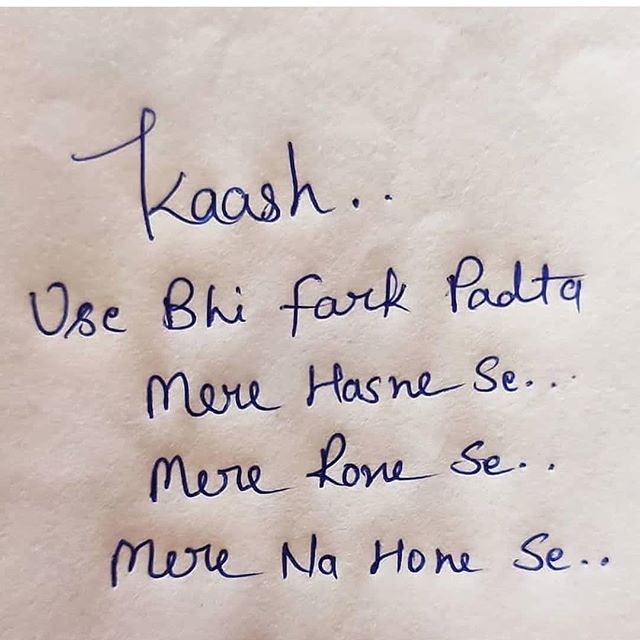 Kaash..
Use Bhi fark Padta
Mere Hasne Se...
Mere Rone Se..
Mere Na Hone Se..